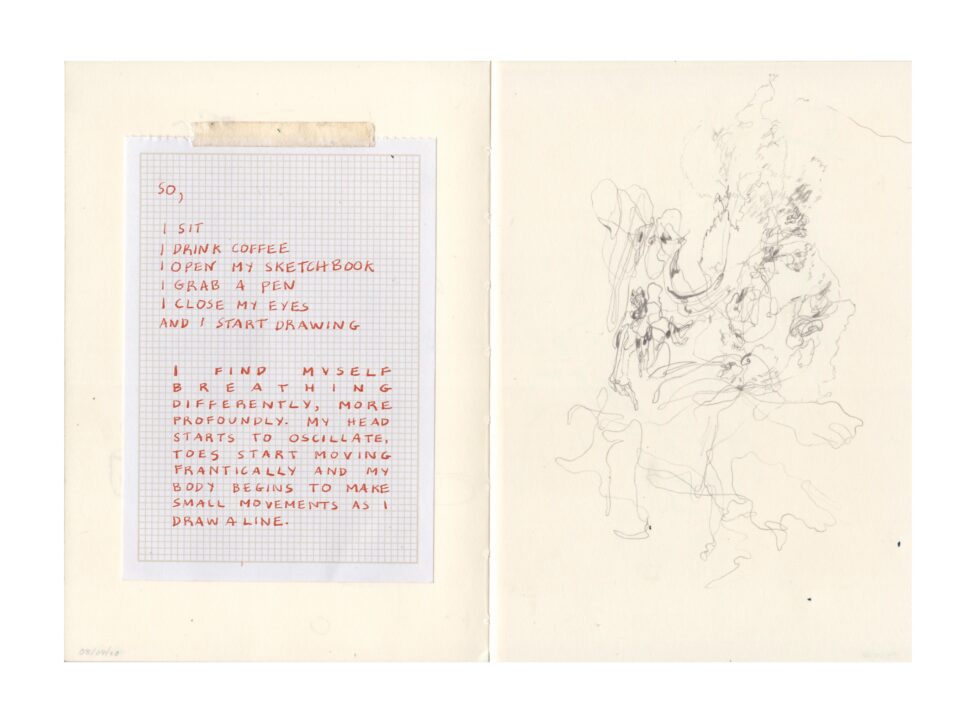 SO,
I SIT
I DRINK COFFEE
I OPEN MY SKETCHBOOK
I GRAB A PEN
I CLOSE MY EYES
AND I START DRAWING
I FIND MYSELF
BREATHING
DIFFERENTLY, MORE
PROFOUNDLY. MY HEAD
STARTS TO OSCILLATE,
TOES START MOVING
FRANTICALLY AND MY
BODY BEGINS TO MAKE
SMALL MOVEMENTS AS I
DRAW A LINE.